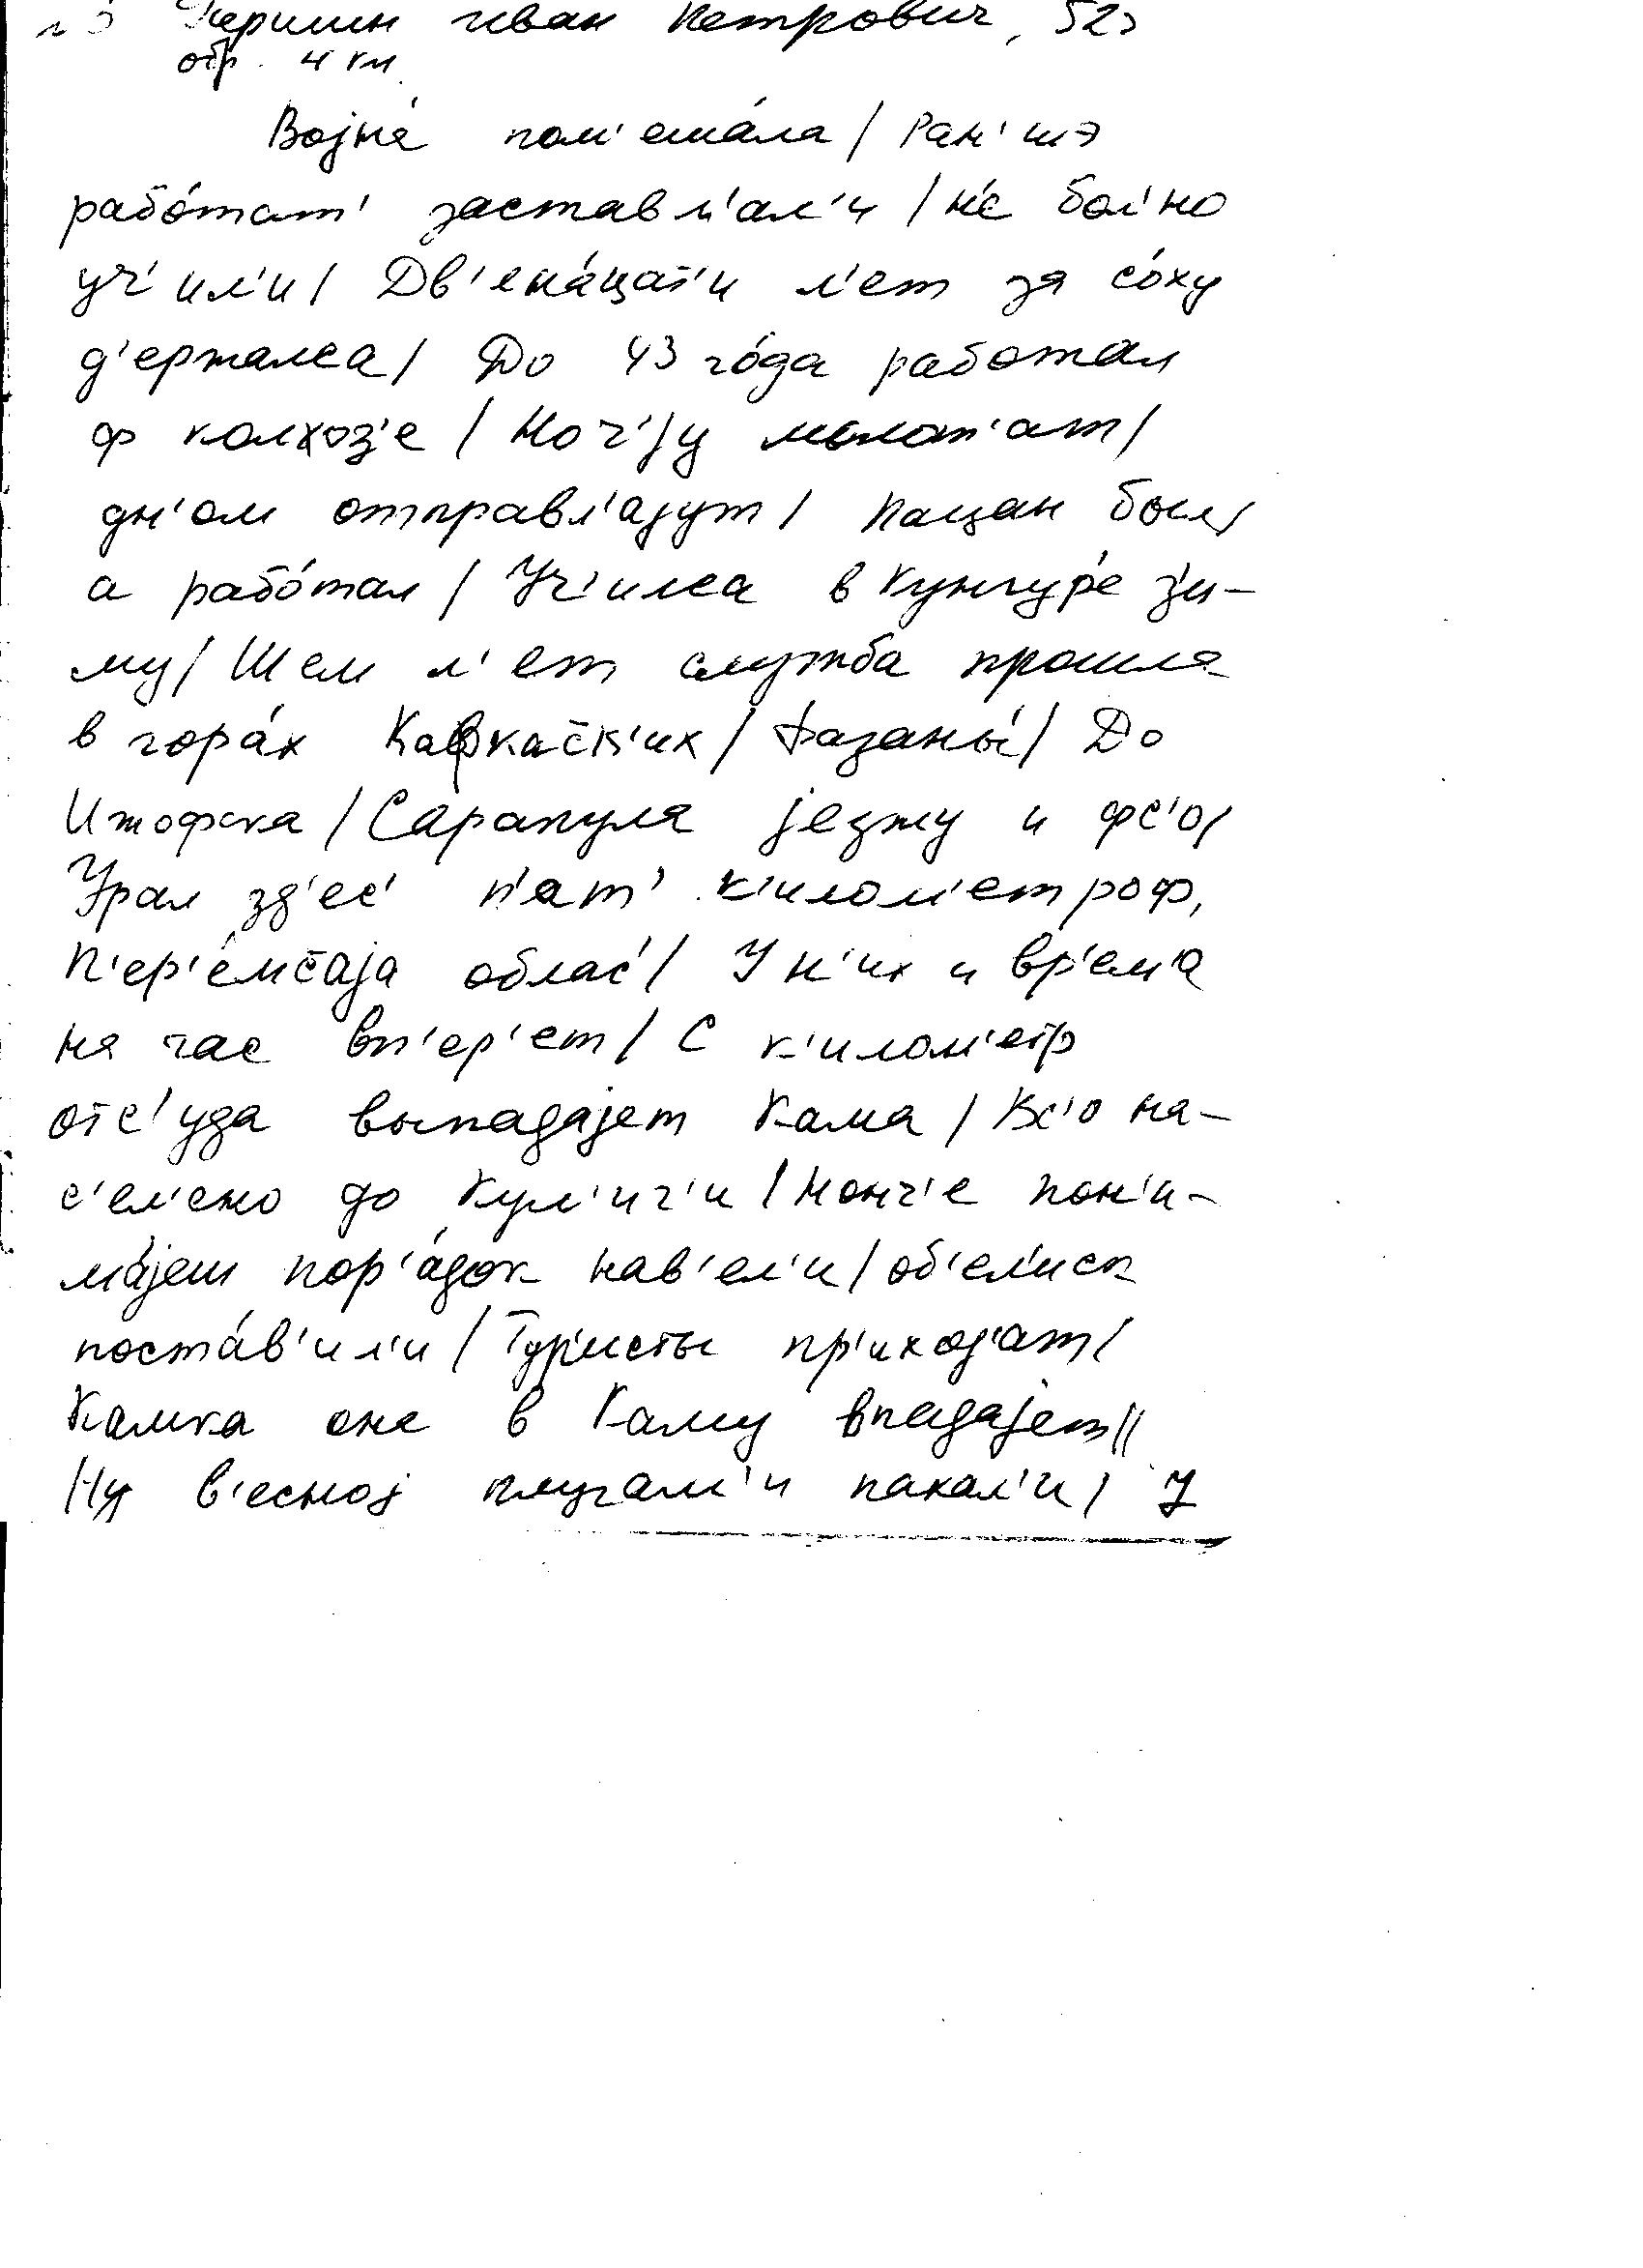 Иван Петрович, 52
обр. 4 кл.
Војна́ пом'ешáла / Ран'шэ
рабóтат' заставл'ал'и / не бол'но
уч'ил'и / Дв'енáцат'и л'ет за сóху
д'ержалса / До 43 гóда работал
ф колхоз'е / Ноч'јy молот'ат /
дн'ом отправл'ајут / Пацан был /
а рабóтал / Уч'илса в Кунгур'е з'и-
му / Шем л'ет служба прошла
в горáх Кафкаск'их / Фазаны́ / До
Ижофска / Сарапула језжу и фс'о /
Урал зд'ес' п'ат' к'илом'етроф,
П'ер'éмскаја облас' / У н'их и вр'ем'а
на час вп'ер'ет / С к'илом'етр
отс'уда выпадајет Кама / Вс'о на-
с'ел'ено до Кул'иг'и / Нонч'е пон'и-
мáјеш пор'áдок нав'ел'и / об'ел'иск
постáв'ил'и / Тур'исты пр'иход'ат /
Камка она в Каму впадајет //
Ну в'есној плугам'и пахал'и / У